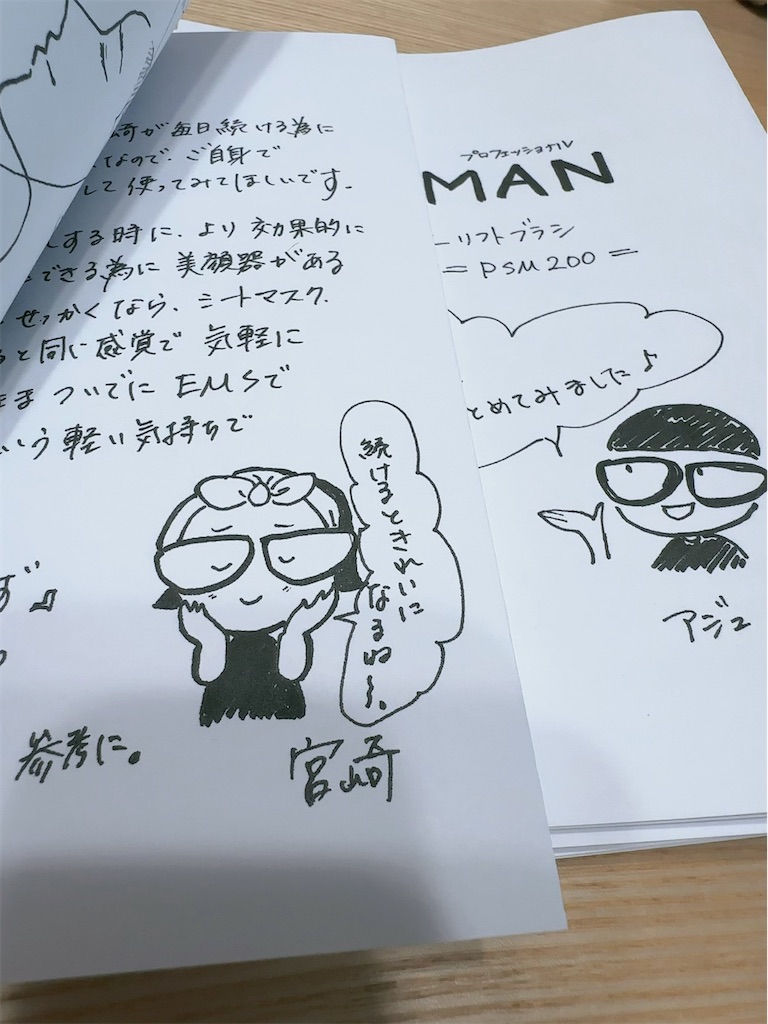 崎が毎日続ける為に
なので、ご自身で
して使ってみてほしいです。
する時に、より効果的に
できる為に美顔器がある
せっかくなら、シートマスク
ると同じ感覚で 気軽に
まま ついでに EMSで
いう軽い気持ちで
続けるときれいに
なるね〜。
参考に。
宮崎
プロフェッショナル
MAN
ーリフトブラシ
= PSM200 =
とめてみました♪
アジュ